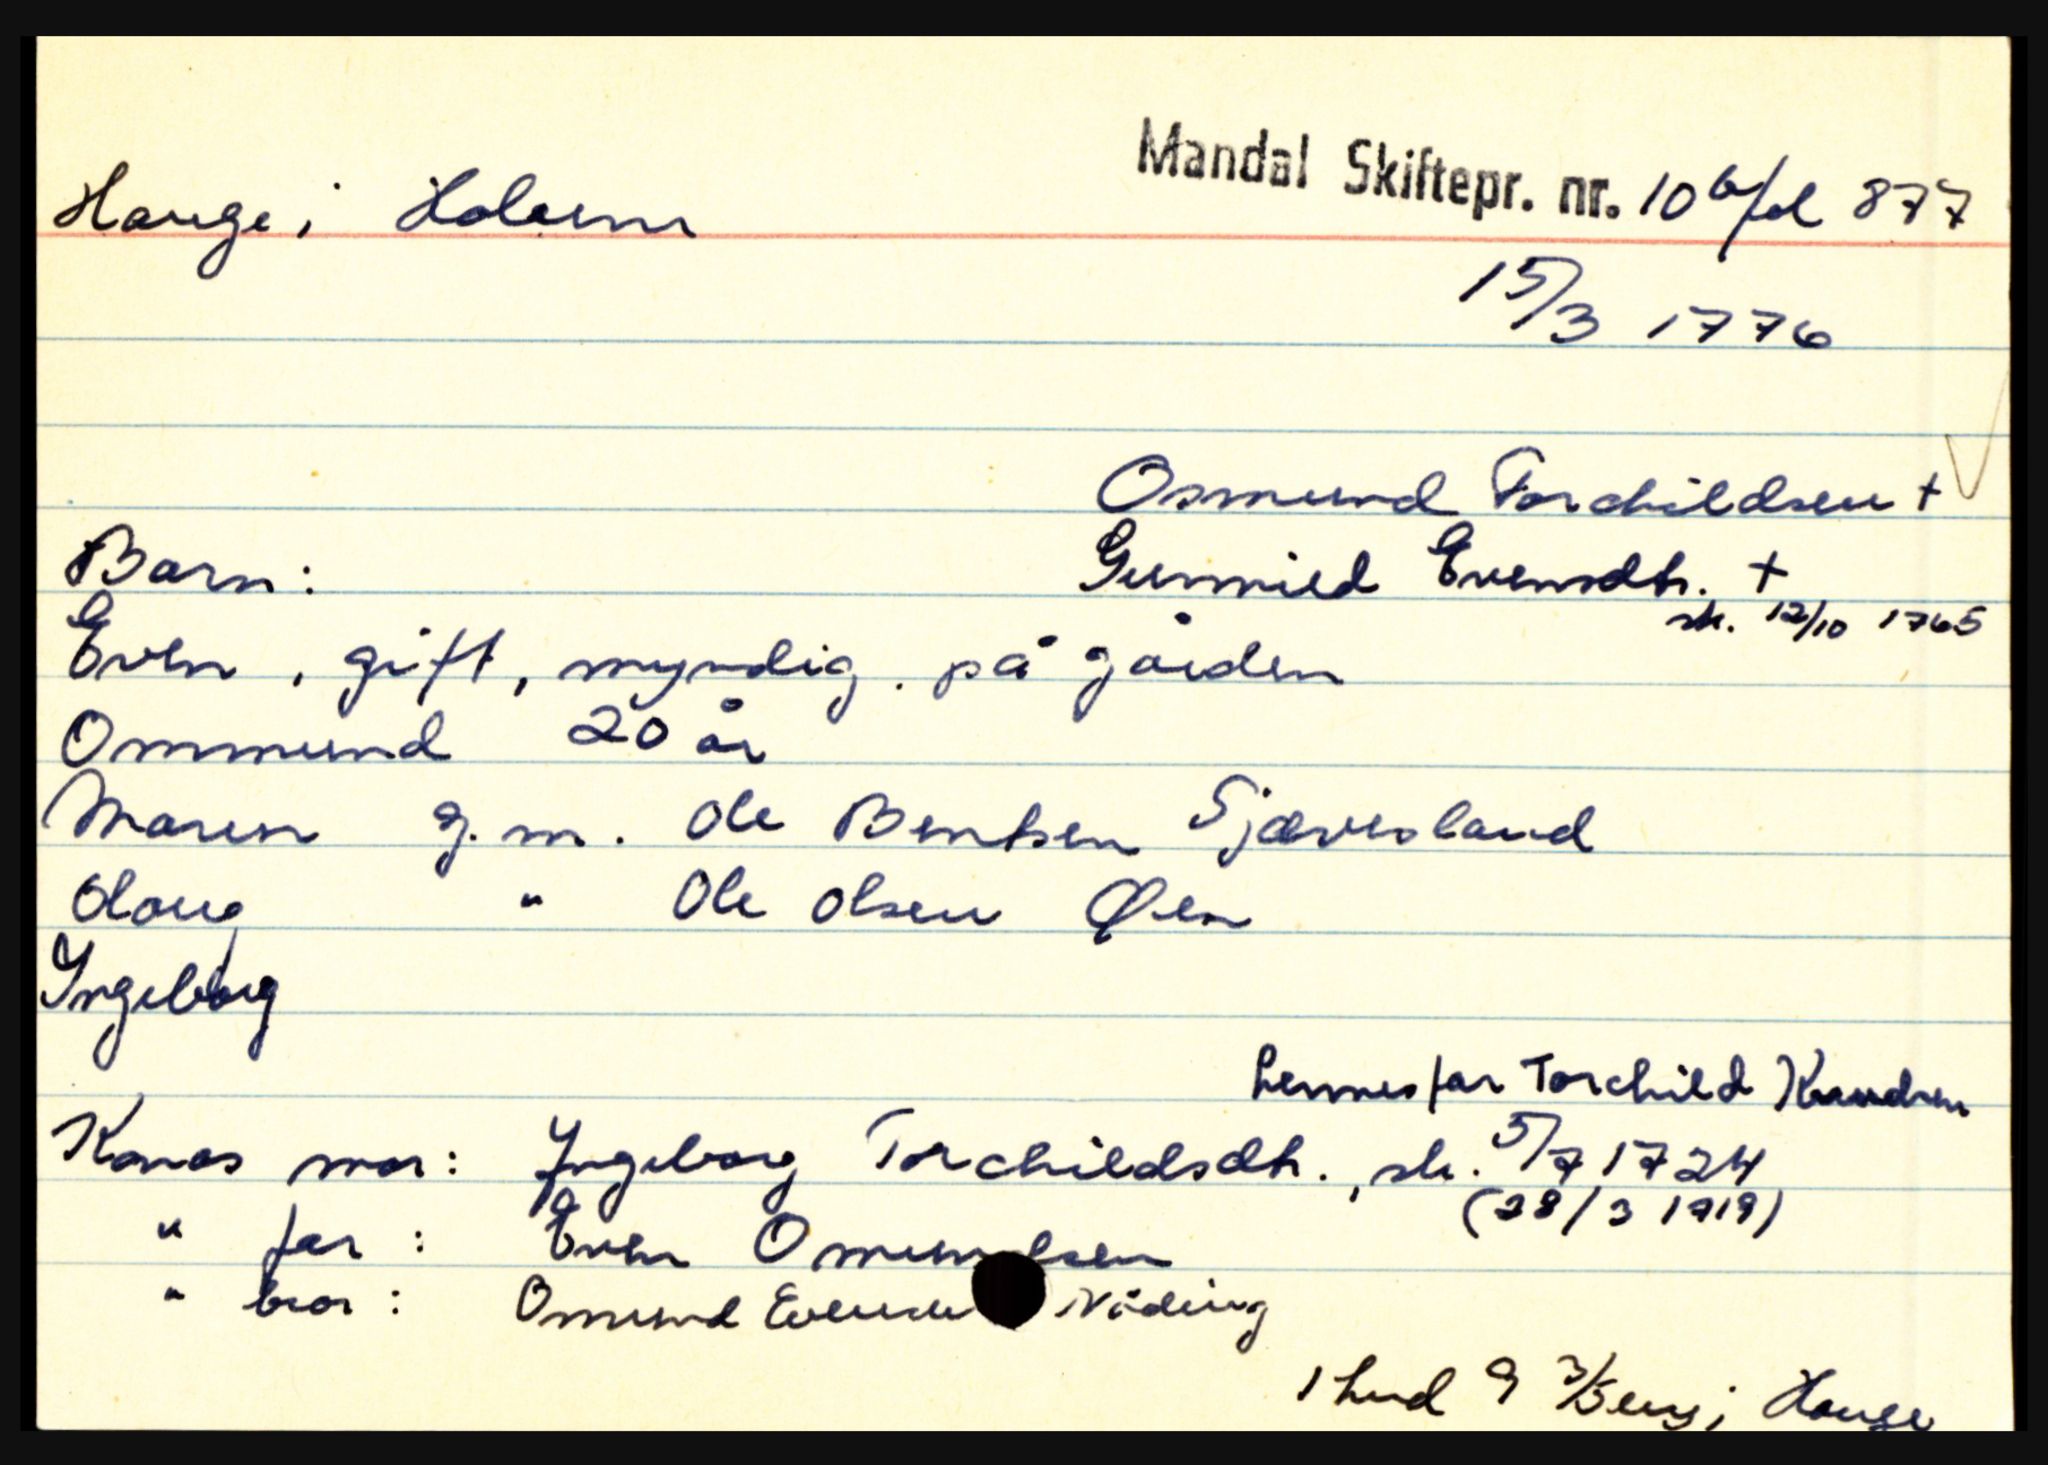 Mandal Skiftepr. nr. 10 b/fol 877
Hauge i Holum
15/3 1776
Osmund Torchildsen +
Barn: Gunnild Evensdtr. +
sk. 12/10 1765
Even, gift, myndig. på gården
Ommund 20 år
Maren g. m. Ole Bentsen Tjævesland
Olaug " Ole Olsen Øen
Ingeborg
hennes far Torchild Knudsen
Konas mor: Ingeborg Torchildsdtr., sk. 5/7 1724
(28/3 1719)
" far: Even Omundsen
" bror: Omund Evensen Nöding
1 hud 9 3/5 eng i Hauge